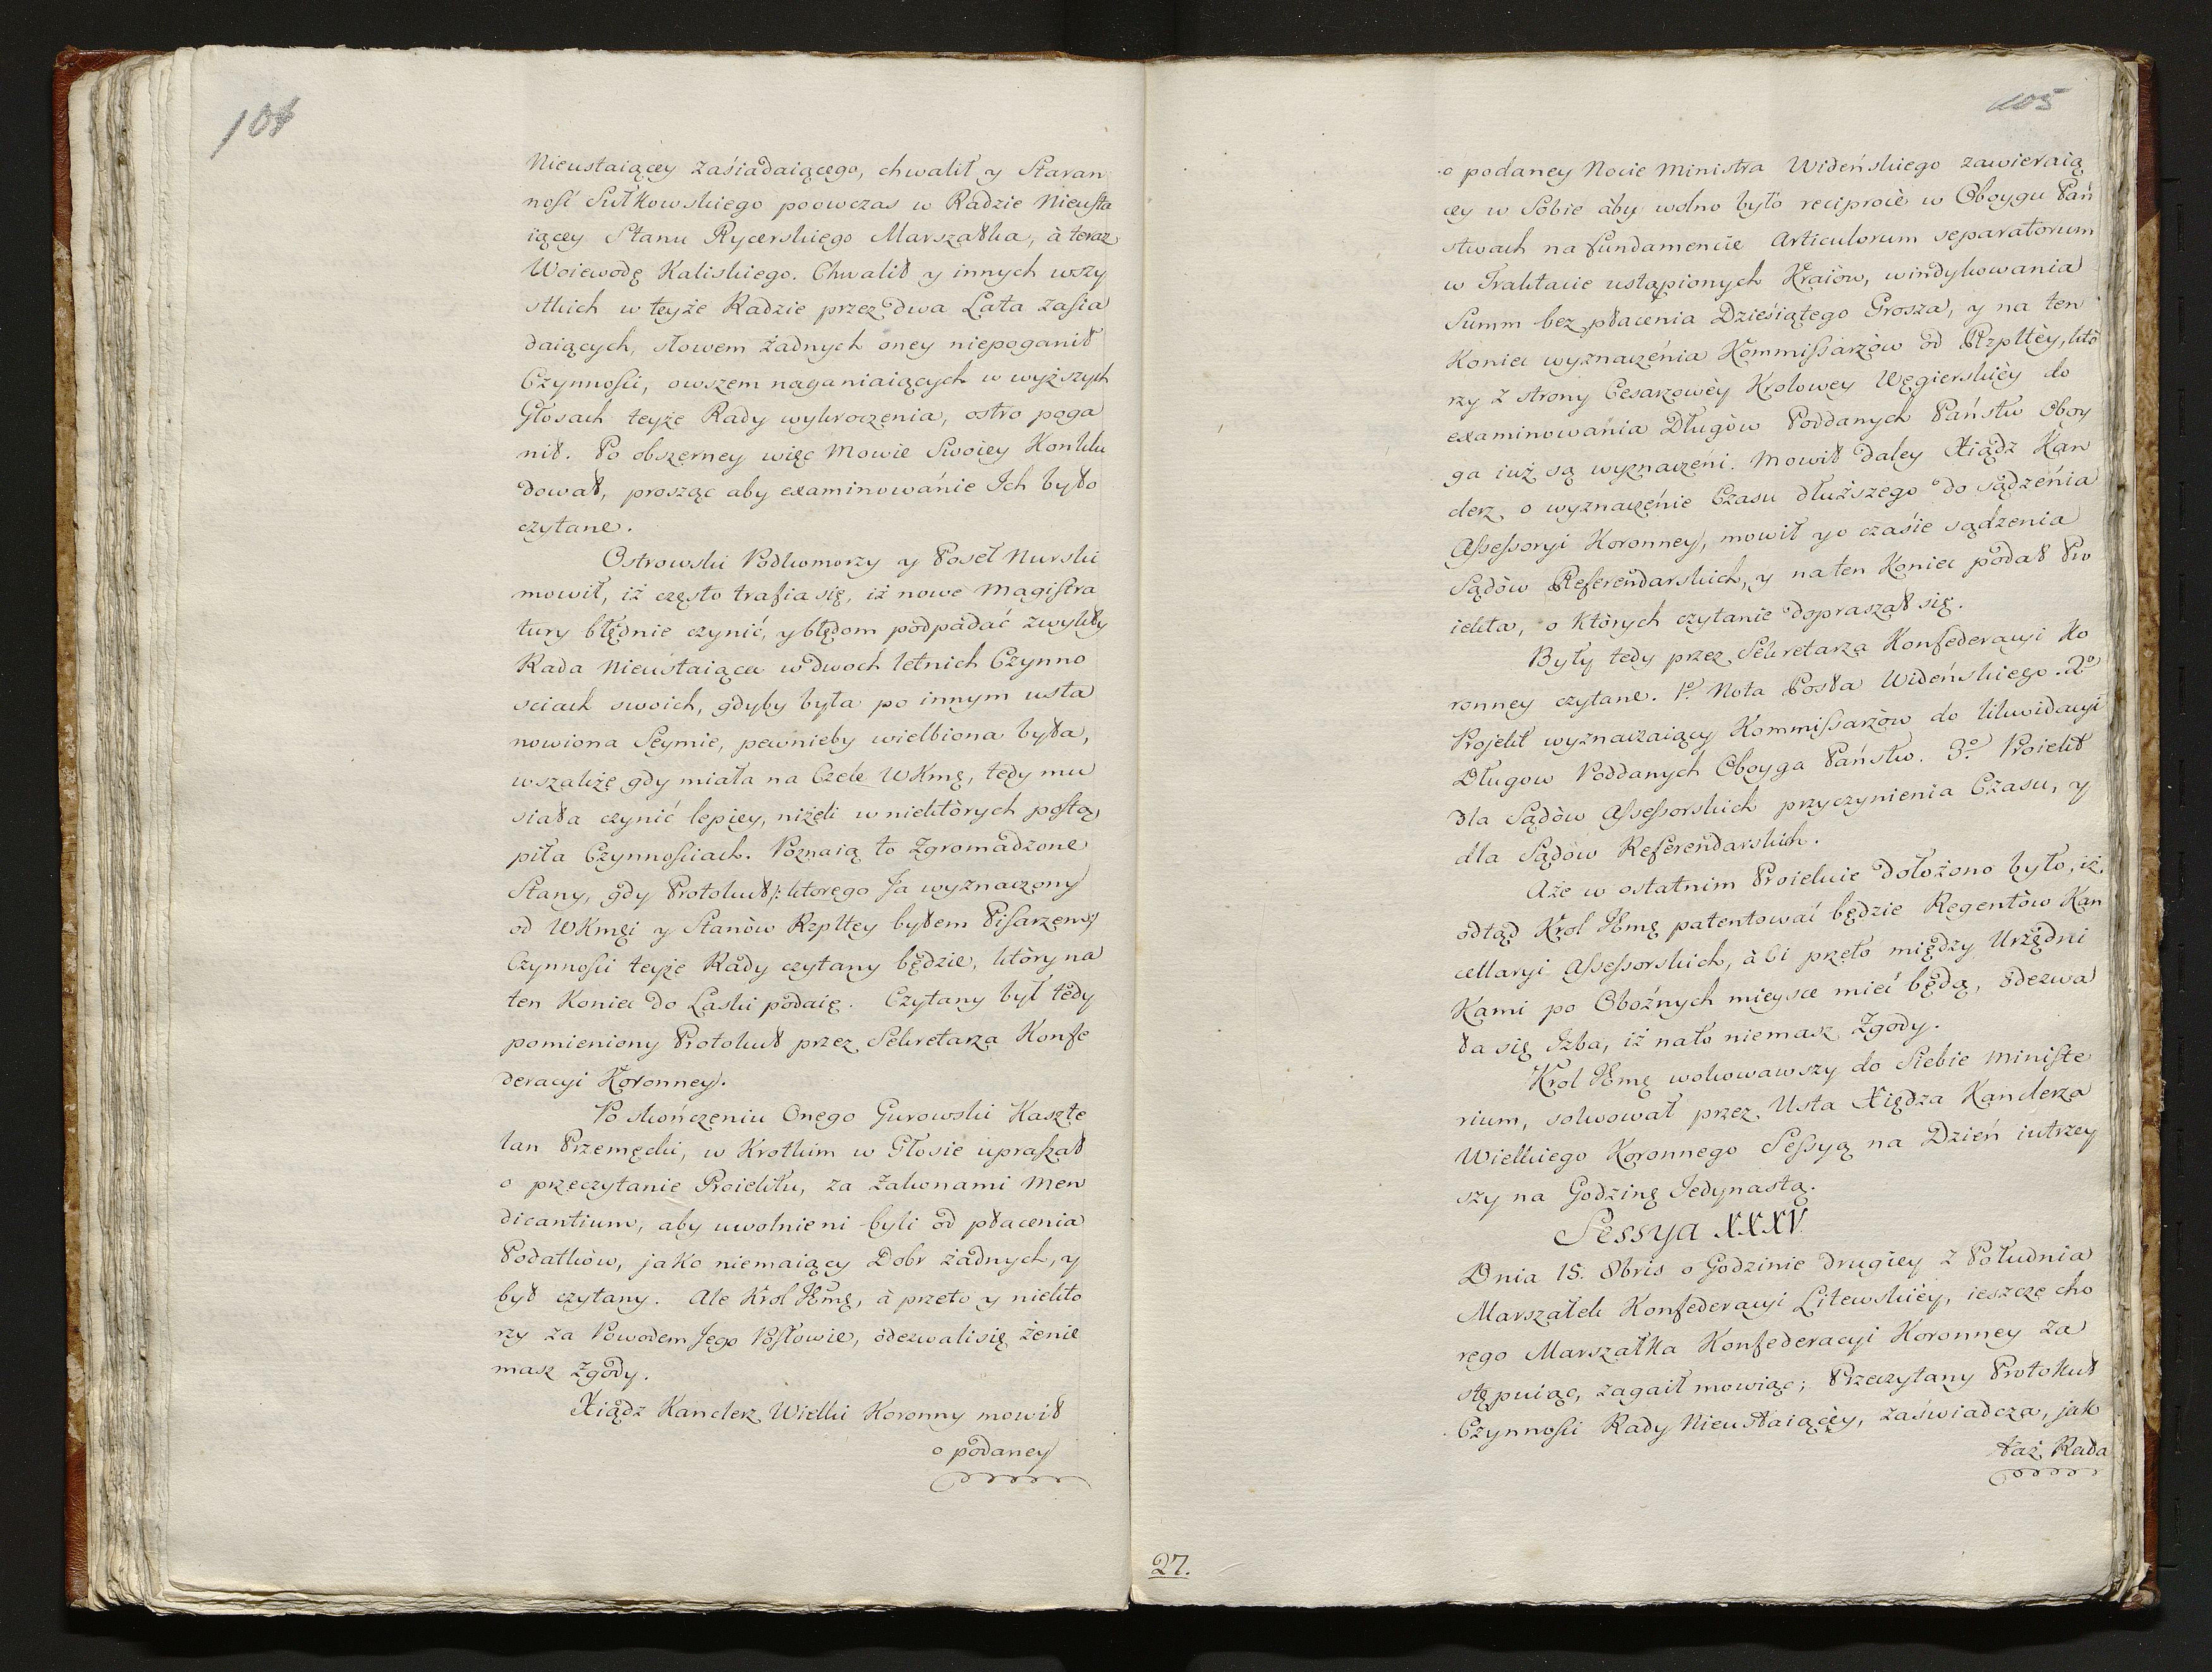 104
Nieustaiącey zaśiadaiącego, chwalił y Staran
ność Sułkowskiego poowczas w Radzie Nieusta
iącey Stanu Rycerskiego Marszałka, à teraz
Woiewodę Kaliskiego. Chwalił y innych wszy
stkich w teyże Radzie przez dwa Lata zasia
daiących, słowem żadnych oney niepoganił
Czynności, owszem naganiaiących w wyższych
Głosach teyże Rady wykroczenia, ostro poga
nił. Po obszerney więc Mowie Swoiey Konklu
dował, prosząc aby examinowánie Ich było
czytane.
Ostrowski Podkomorzy y Poseł Nurski
mowił, iż często trafia się, iż nowe Magistra
tury błędnie czynić, y błędom podpadać zwykły
Rada Nieustaiąca w dwoch letnich Czynno
sciach swoich, gdyby była po innym usta
nowiona Seymie, pewnieby wielbiona była,
wszakże gdy miała na Czele WKmę, tedy mu
siała czynić lepiey, niżeli w niektòrych postą
piła Czynnościach. Poznaią to Zgromadzone
Stany, gdy Protokuł /: ktorego Ja wyznaczony
od WKmęi y Stanòw Rzpltey byłem Pisarzem :/
Czynności teyże Rady czytany będzie, ktòry na
ten Koniec do Laski podaię. Czytany był tedy
pomieniony Protokuł przez Sekretarza Konfe
deracyi Koronney.
Po skończeniu Onego Gurowski Kaszte
lan Przemęcki, w Krotkim w Głosie upraszał
o przeczytanie Proiektu, za Zakonami Men
dicantium, aby uwolnieni byli od płacenia
Podatkòw, jako niemaiący Dobr żadnych, y
był czytany. Ale Krol Jmę, à przeto y niekto
rzy za Powodem Jego Posłowie, odezwali się że nie
masz Zgody.
Xiądz Kanclerz Wielki Koronny mowił
o podaney
105
o podaney Nocie Ministra Wideńskiego zawieraią
cey w Sobie aby wolno było reciprocè w Oboygu Pań
stwach na fundamencie Articulorum separatorum
w Traktacie ustąpionych Kraiòw, windykowania
Summ bez płacenia Dzieśiątego Grosza, y na ten
Koniec wyznaczénia Kommissarzòw od Rzpltèy, któ
rzy z strony Cesarzowèy Krolowey Węgierskièy do
examinowánia Długòw Poddanych Państw Oboy
ga iuż są wyznaczeni. Mowił daley Xiądz Kan
clerz o wyznaczénie Czasu dłuższego do sądzénia
Assessoryi Koronney, mowił y o czaśie sądzenia
Sądòw Referendarskich, y na ten Koniec podał Pro
iekta, o Ktòrych czytanie dopraszał się.
Były tedy przez Sekretarza Konfederacyi Ko
ronney czytane. 1º. Nota Posła Wideńskiego. 2º
Projekt wyznaczaiący Kommissarzòw do likwidacyi
Długow Poddanych Oboyga Państw. 3º. Proiekt
dla Sądòw Assessorskich przyczynienia Czasu, y
dla Sądòw Referendarskich.
Aże w ostatnim Proiekcie dołożono było, iż
odtąd Krol Jmę patentować będzie Regentòw Kan
cellaryi Assessorskich, à Ci przeto między Urzędni
Kami po Oboźnych mieysce mieć będą, odezwa
ła się Izba, iż nato niemasz Zgody.
Krol Jmę wokowawszy do Siebie Ministe
rium, solwował przez Usta Xiędza Kanclerza
Wielkiego Koronnego Sessyą na Dzień iutrzey
szy na Godzinę Jedynastą.
Sessya XXXV
Dnia 15. 8bris o Godzinie drugiey z Południa
Marszałek Konfederacyi Litewskiéy, ieszcze cho
rego Marszałka Konfederacyi Koronney Za
stępuiąc, zagaił mowiąc; Przeczytany Protokuł
Czynności Rady Nieustaiącèy, zaświadcza, jak
taż Rada
27.